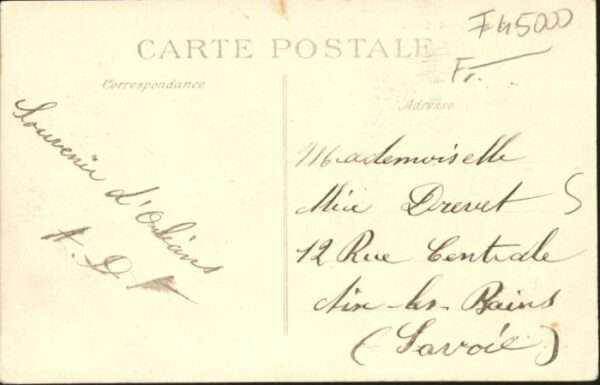 F45000
Fr.
CARTE POSTALE
Correspondance
Adresse
Souvenir d'Orléans
Mademoiselle
Drevet
12 Rue Centrale
Aix-les-Bains
(Savoie)